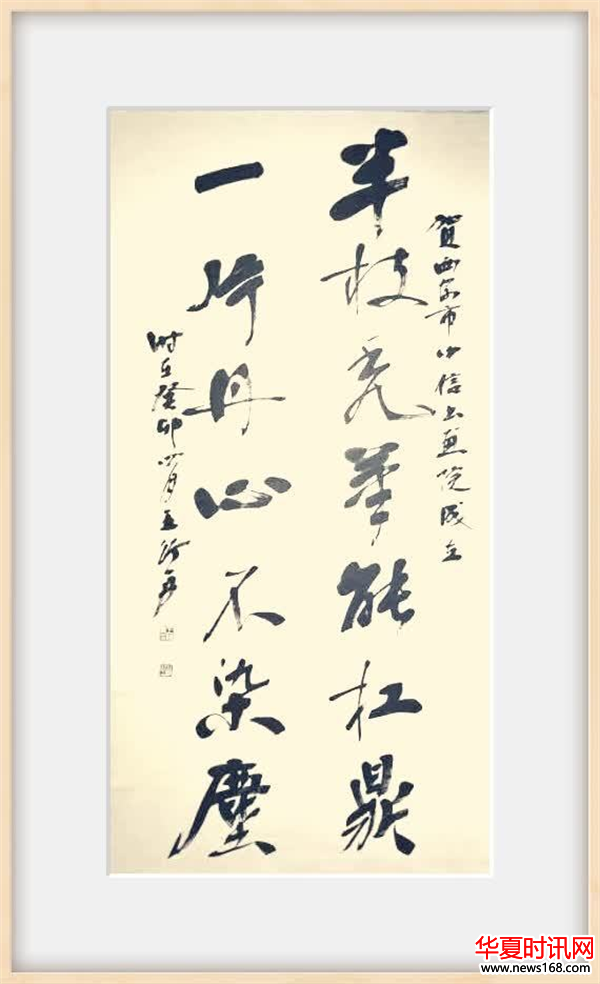 賀西安市信书画院成立
半枝秃筆能扛鼎
一片丹心不染塵
时在癸卯四月王
华夏时讯网
www.news168.com